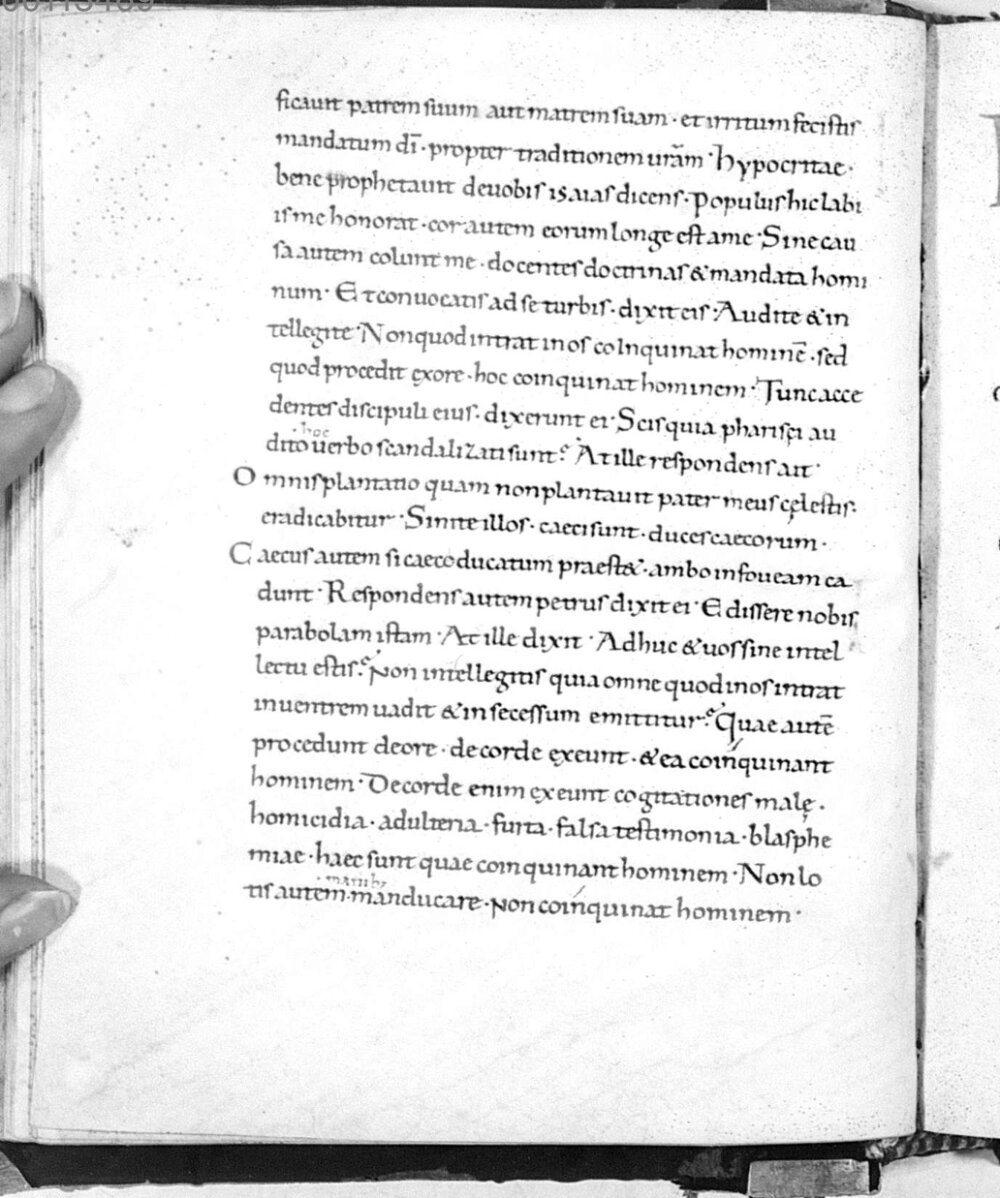 ficauit patrem suum aut matrem suam · et irritum fecistis
mandatum dī · propter traditionem urām · hypocritae ·
bene prophetauit deuobis isaias dicens · Populus hic labi
is me honorat · cor autem eorum longe est a me · Sine cau
sa autem colunt me · docentes doctrinas & mandata homi
num · Et conuocatis ad se turbis · dixit eis · Audite & in
tellegite · Non quod intrat in os coinquinat hominē · sed
quod procedit exore · hoc coinquinat hominem · Tunc acce
dentes discipuli eius · dixerunt ei · Scis quia pharisęi au
dito · hoc uerbo scandalizati sunt? At ille respondens ait ·
Omnis plantatio quam non plantauit pater meus cęlestis ·
eradicabitur · Sinite illos · caeci sunt · duces caecorum ·
Caecus autem si caeco ducatum praest& · ambo in foueam ca
dunt · Respondens autem petrus dixit ei · Edissere nobis
parabolam istam · At ille dixit · Adhuc & uos sine intel
lectu estis? Non intellegitis quia omne quod in os intrat
in uentrem uadit & in secessum emittitur? Quae autē
procedunt deore · de corde exeunt · & ea coinquinant
hominem · De corde enim exeunt cogitationes malę ·
homicidia · adulteria · furta · falsa testimonia · blasphe
miae · haec sunt quae coinquinant hominem · Non lo
tis autem · manib; manducare · non coinquinat hominem ·